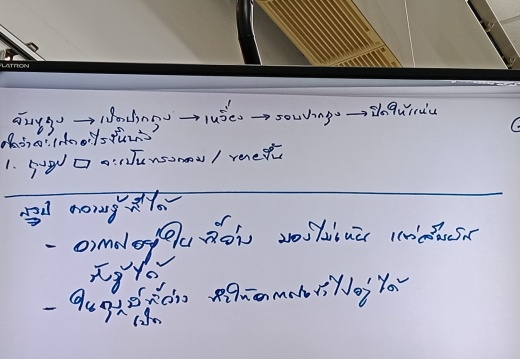 FLATRON
จับหูถุง → เปิดปากถุง → เหวี่ยง → รวบปากถุง → ปิดให้แน่น
คิดว่าจะเกิดอะไรขึ้นบ้าง
1. ถุงรูป □ จะเป็นทรงกลม / ขยายขึ้น
สรุป ความรู้ที่ได้
- อากาศอยู่ในที่ว่าง มองไม่เห็น แต่สัมผัส
รับรู้ได้
- ในถุงมีที่ว่าง ทำให้อากาศเข้าไปอยู่ได้
เปิด